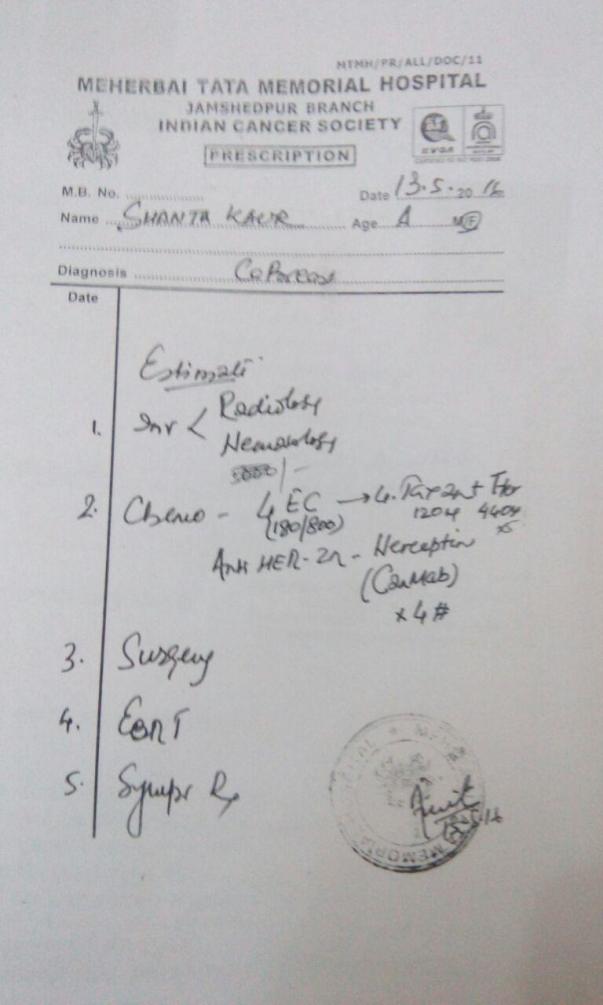 MTMH/PR/ALL/DOC/11
MEHERBAI TATA MEMORIAL HOSPITAL
JAMSHEDPUR BRANCH
INDIAN CANCER SOCIETY
PRESCRIPTION
M.B. No. Date 13.5.2016
Name SHANTA KAUR Age A M/F
Diagnosis Ca Breast
Date
Estimate
1. Inv < Radiology
Hematology
5000/-
2. Chemo - 4 EC → 4.
(180/800) 120mg 440mg
Anti HER-2n - Herceptin
(CanMab)
x 4 #
3. Surgery
4. EBRT
5. Sympt Rx